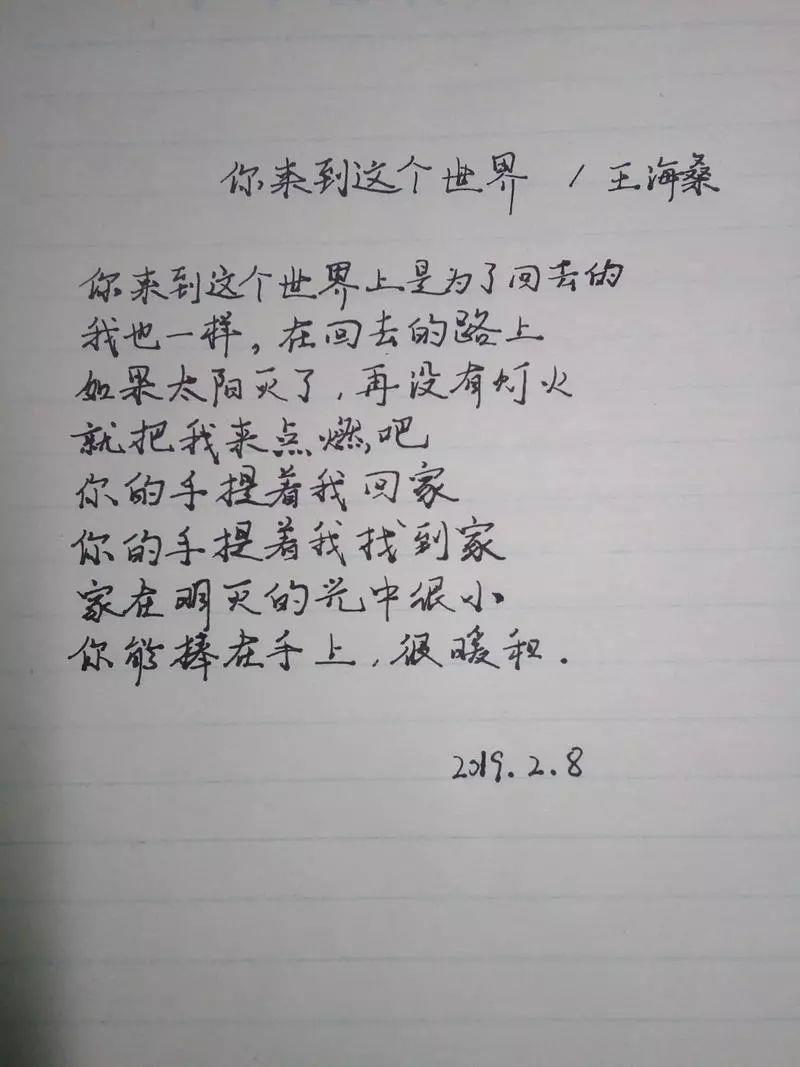 你来到这个世界 / 王海桑
你来到这个世界上是为了回去的
我也一样，在回去的路上
如果太阳灭了，再没有灯火
就把我来点燃吧
你的手提着我回家
你的手提着我找到家
家在明灭的光中很小
你能捧在手上，很暖和.
2019.2.8